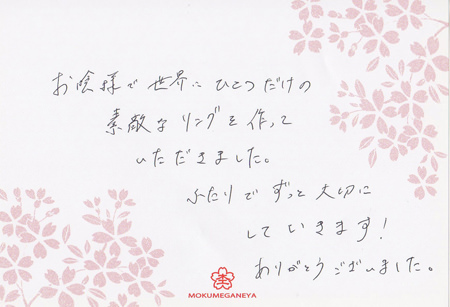 お陰様で世界にひとつだけの
素敵なリングを作って
いただきました。
ふたりでずっと大切に
していきます!
ありがとうございました。
MOKUMEGANEYA